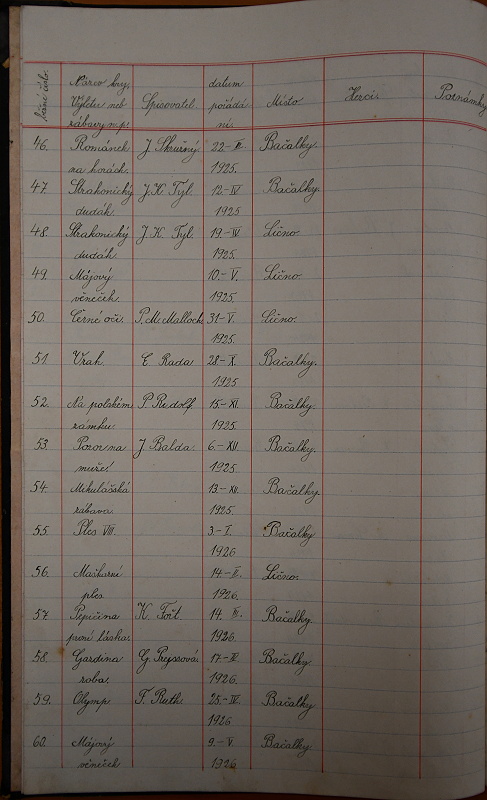 běžné číslo. Název hry, datum
Výletu neb Spisovatel. pořádá- Místo. Herci. Poznámky
zábavy n.p. ní.
46. Románek J. Skružný 22.-III. Bačalky.
na horách. 1925.
47. Strakonický J. K. Tyl. 12.-IV Bačalky.
dudák. 1925
48. Strakonický J. K. Tyl. 19.-IV Lično.
dudák. 1925.
49. Májový 10.-V. Lično.
věneček. 1925.
50. Černé oči. P. M. Malloch. 31.-V. Lično.
1925.
51. Vrah. E. Rada 28.-X. Bačalky.
1925
52. Na polském P. Rudolf. 15.-XI. Bačalky.
zámku. 1925.
53. Pozor na J. Balda. 6.-XII Bačalky.
muže! 1925.
54. Mikulášská 13.-XII. Bačalky.
zábava. 1925.
55. Ples VIII. 3.-I. Bačalky
1926
56. Maškarní 14.-II. Lično.
ples 1926.
57. Pepičina K. Fořt 14. III. Bačalky.
první láska. 1926
58. Gazdina G. Preissová 17.-IV Bačalky
roba. 1926.
59. Olymp F. Ruth. 25.-IV. Bačalky
1926
60. Májový 9.-V. Bačalky
věneček 1926